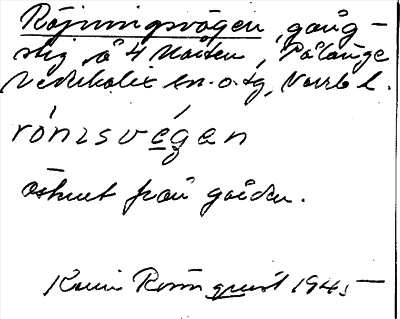 Röjningsvägen, gång-
stig å 4 Noiten, Pålänge
Nederkalix sn. o. tg, Norrb l.
rónısvégen
Östnut från gården.
Karin Rosenquist 1945